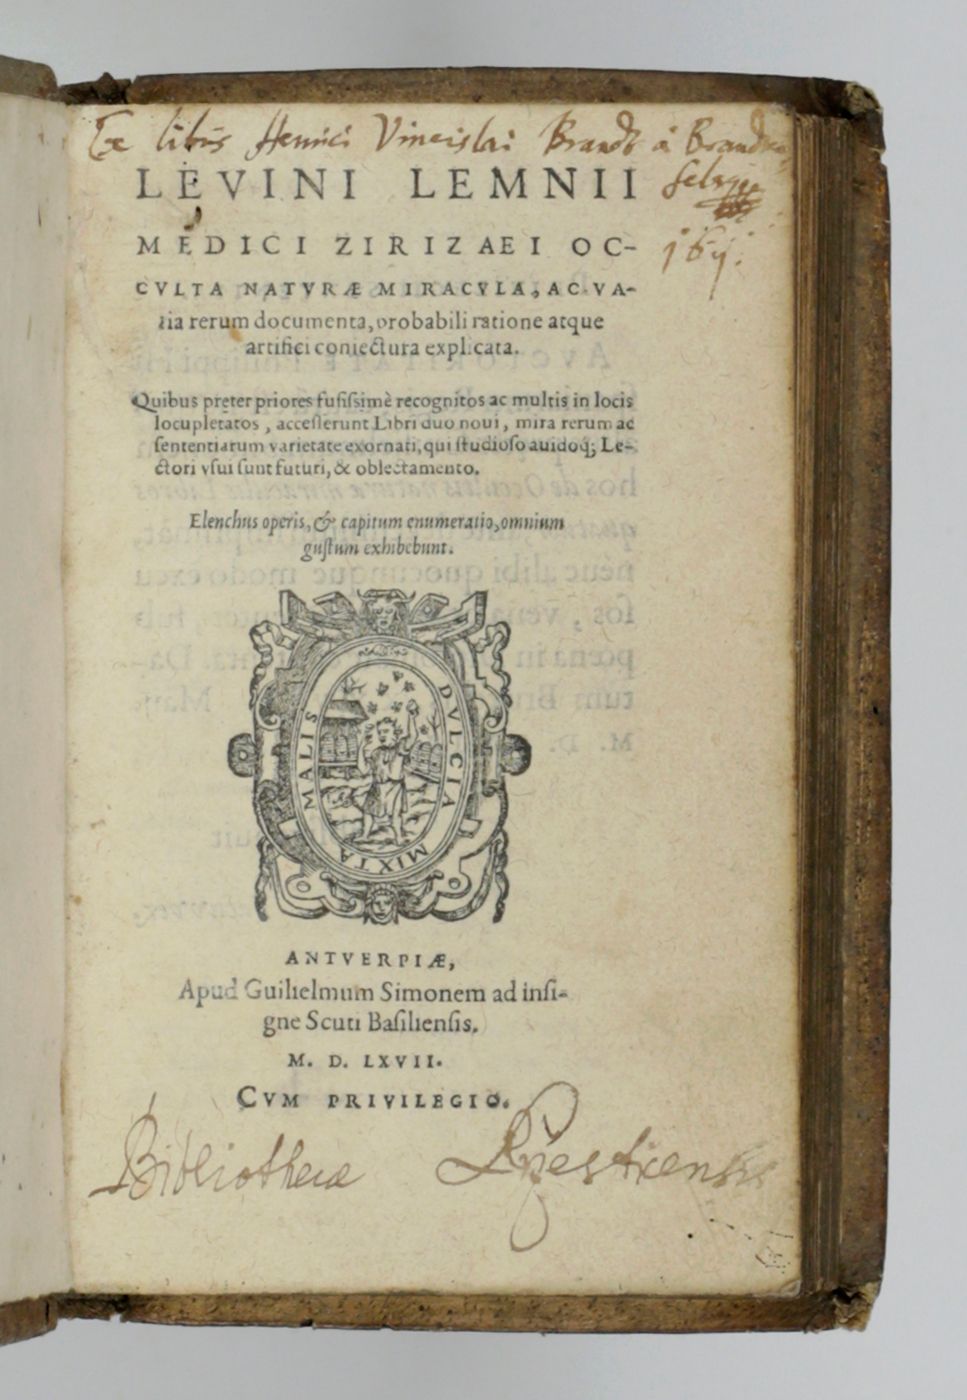 Ex libris Henrici Vinceslai Brandt à
LEVINI LEMNII
MEDICI ZIRIZAEI OC-
CVLTA NATVRÆ MIRACVLA, AC VA-
ria rerum documenta, probabili ratione atque
artifici coniectura explicata.
Quibus pręter priores fusissimè recognitos ac multis in locis
locupletatos, accesserunt Libri duo noui, mira rerum ac
sententiarum varietate exornati, qui studioso auidoq; Le-
ctori vsui sunt futuri, & oblectamento.
Elenchus operis, & capitum enumeratio, omnium
gustum exhibebunt.
DVLCIA MIXTA MALIS
ANTVERPIÆ,
Apud Guilielmum Simonem ad insi-
gne Scuti Basiliensis.
M. D. LXVII.
CVM PRIVILEGIO.
Bibliothecæ